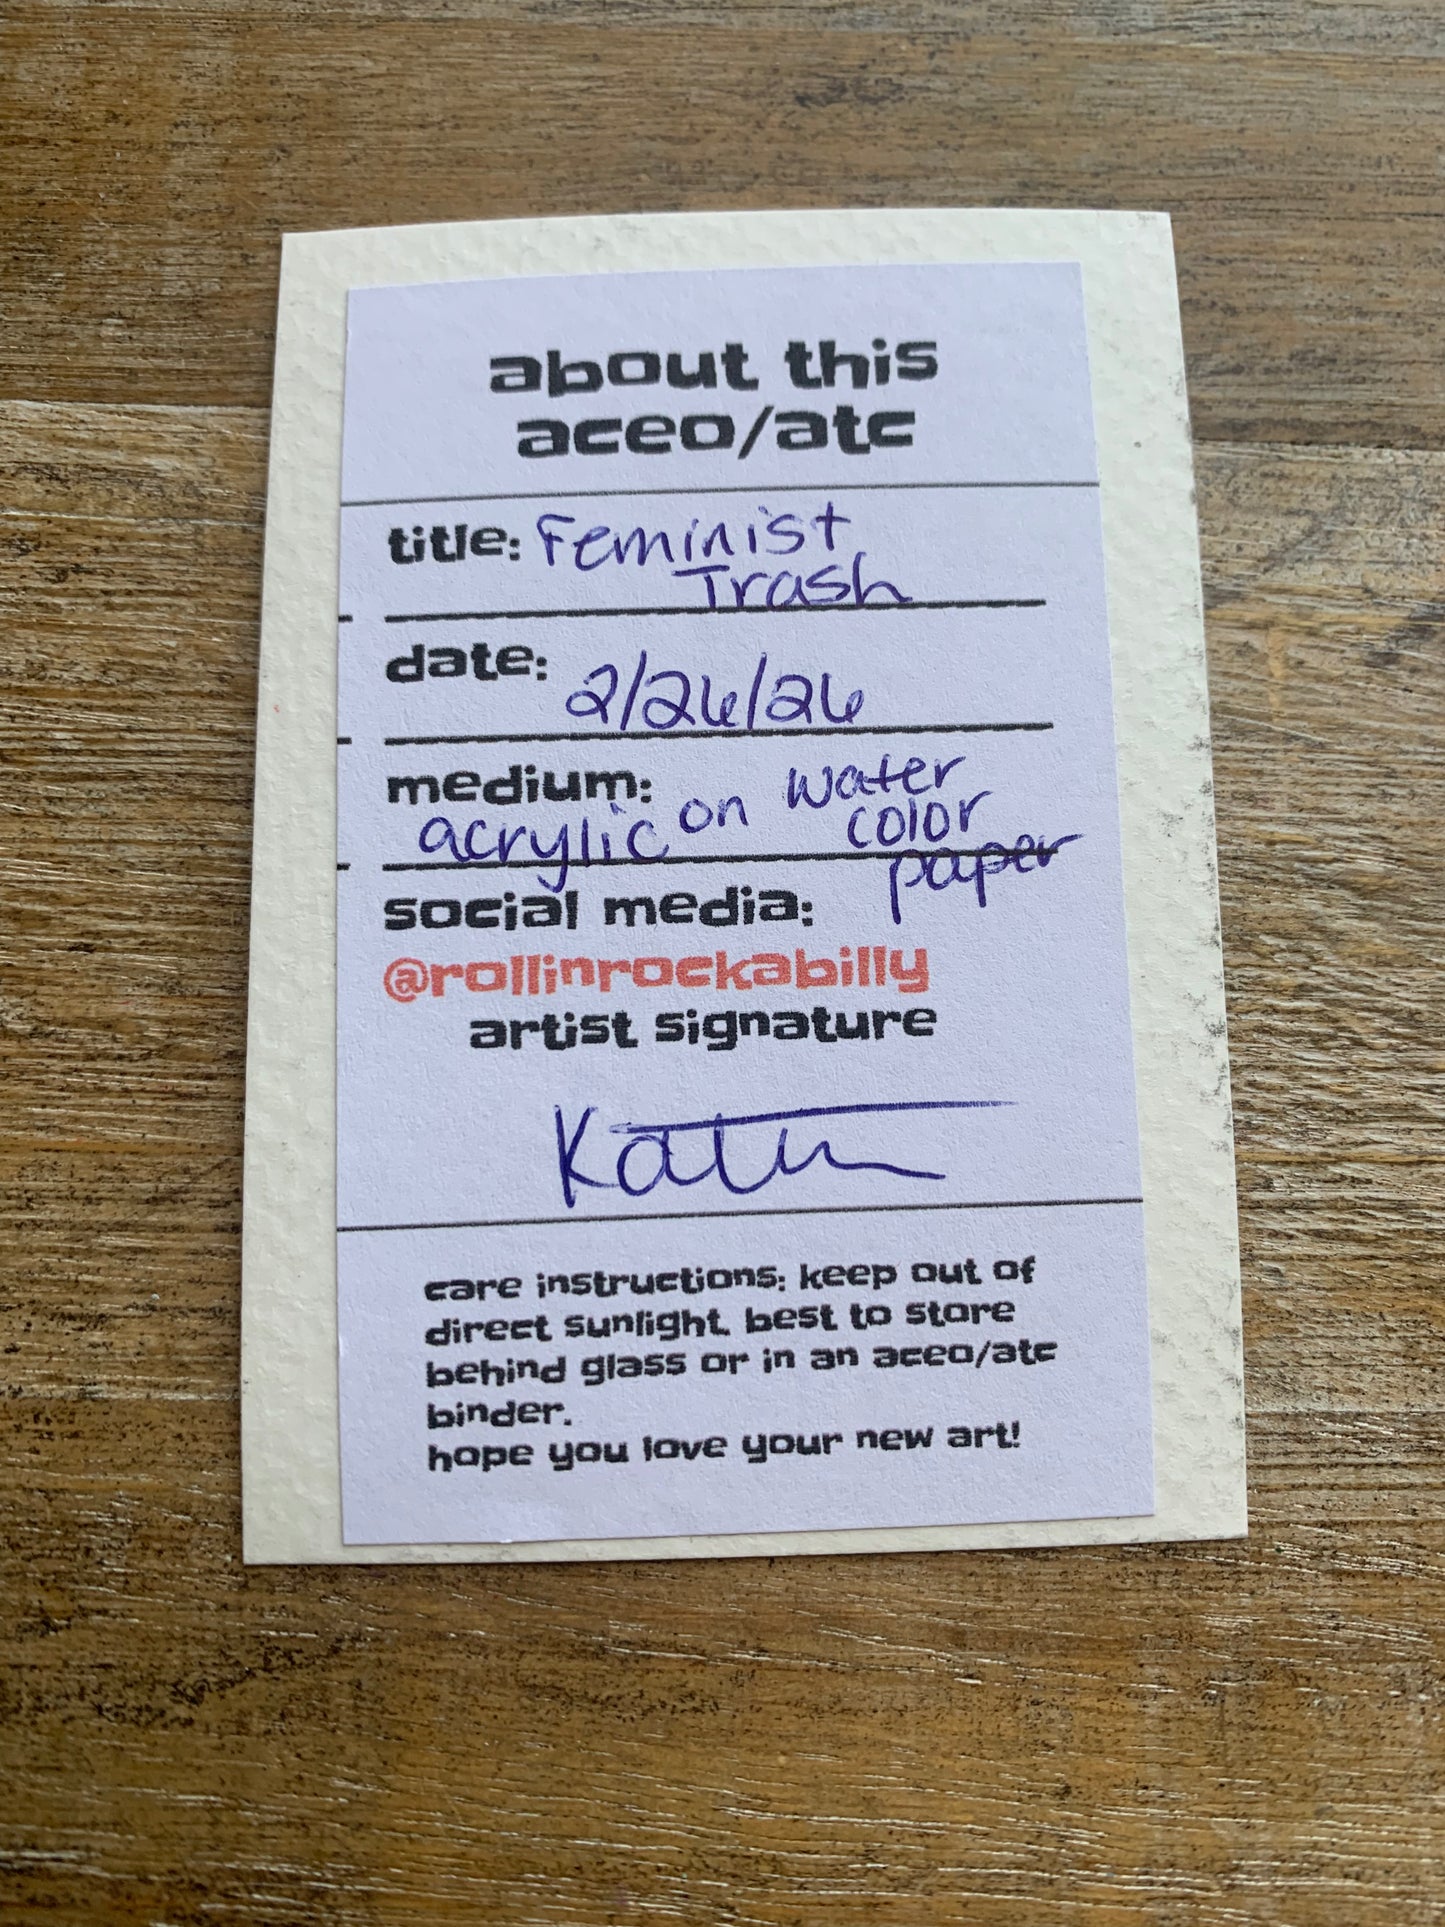 about this
aceo/atc
title: Feminist
Trash
date: 2/26/26
medium:
acrylic on water
color
paper
social media:
@rollinrockabilly
artist signature
care instructions: keep out of
direct sunlight. best to store
behind glass or in an aceo/atc
binder.
hope you love your new art!